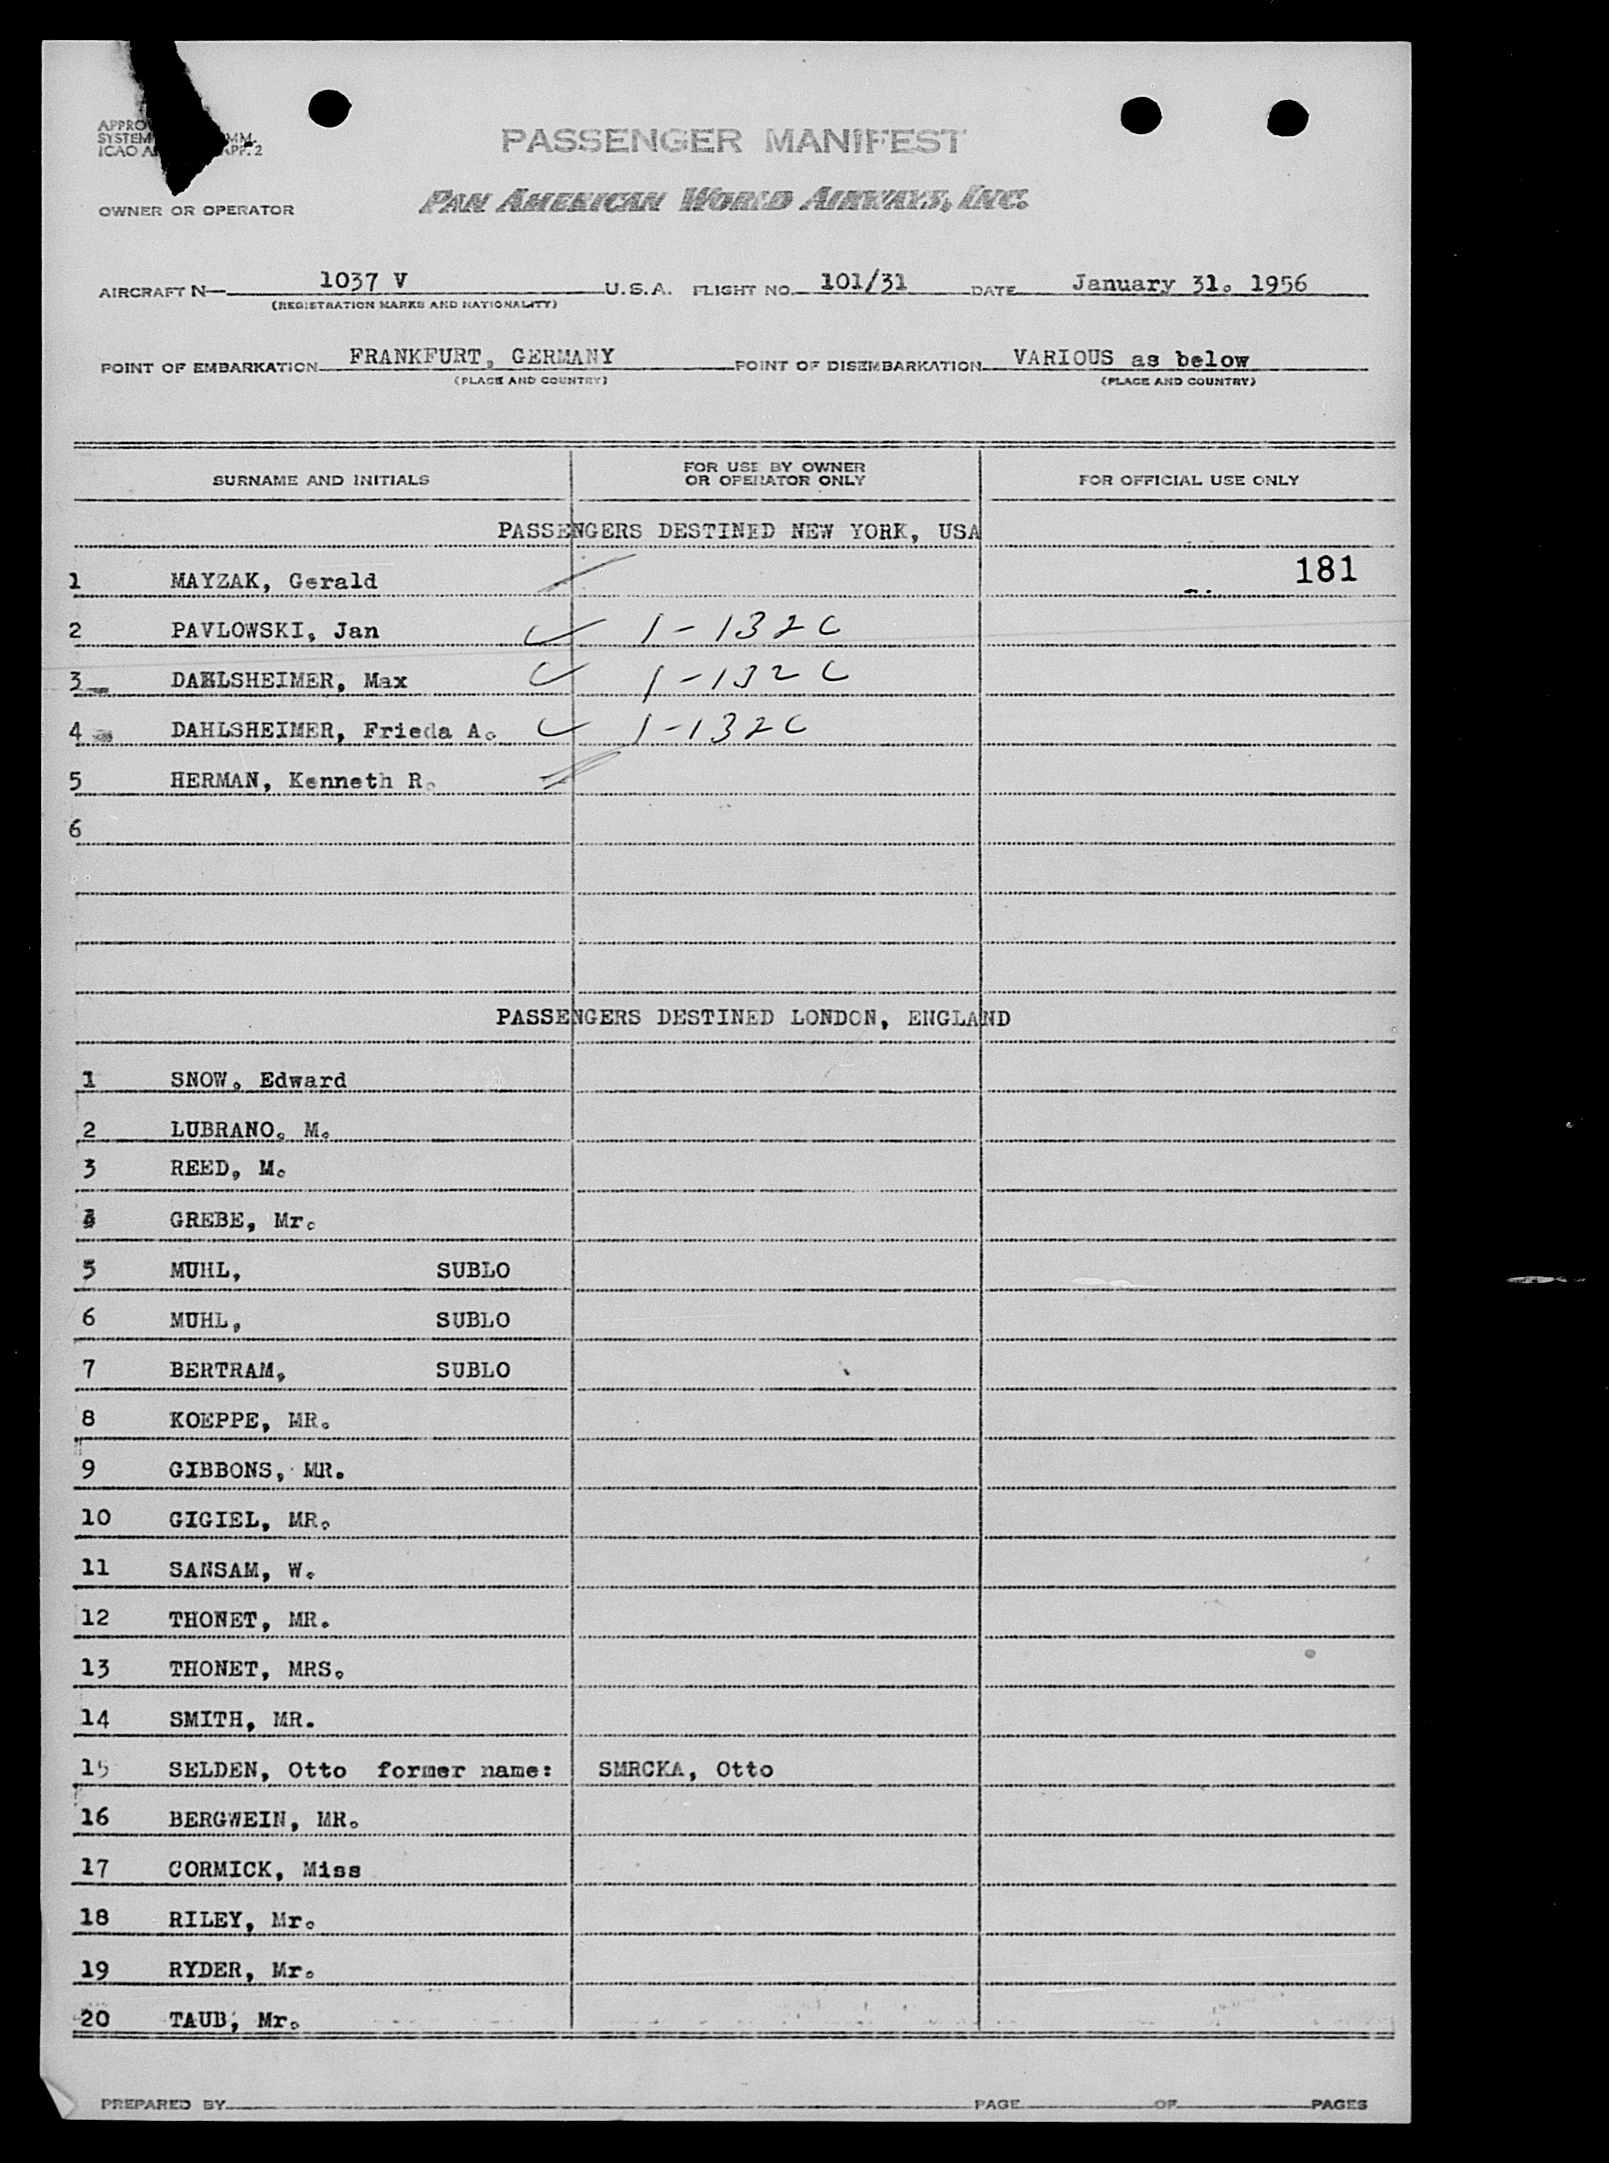 PASSENGER MANIFEST
PAN AMERICAN WORLD AIRWAYS, INC.
OWNER OR OPERATOR
AIRCRAFT N— 1037 V U.S.A. FLIGHT NO. 101/31 DATE January 31. 1956
(REGISTRATION MARKS AND NATIONALITY)
POINT OF EMBARKATION FRANKFURT, GERMANY POINT OF DISEMBARKATION VARIOUS as below
(PLACE AND COUNTRY) (PLACE AND COUNTRY)
SURNAME AND INITIALS FOR USE BY OWNER OR OPERATOR ONLY FOR OFFICIAL USE ONLY
PASSENGERS DESTINED NEW YORK, USA
181
1 MAYZAK, Gerald
2 PAVLOWSKI, Jan 1-132C
3 DAHLSHEIMER, Max 1-132C
4 DAHLSHEIMER, Frieda A. 1-132C
5 HERMAN, Kenneth R.
6
PASSENGERS DESTINED LONDON, ENGLAND
1 SNOW. Edward
2 LUBRANO. M.
3 REED, M.
4 GREBE, Mr.
5 MUHL, SUBLO
6 MUHL, SUBLO
7 BERTRAM, SUBLO
8 KOEPPE, MR.
9 GIBBONS, MR.
10 GIGIEL, MR.
11 SANSAM, W.
12 THONET, MR.
13 THONET, MRS.
14 SMITH, MR.
15 SELDEN, Otto former name: SMRCKA, Otto
16 BERGWEIN, MR.
17 CORMICK, Miss
18 RILEY, Mr.
19 RYDER, Mr.
20 TAUB, Mr.
PREPARED BY PAGE OF PAGES